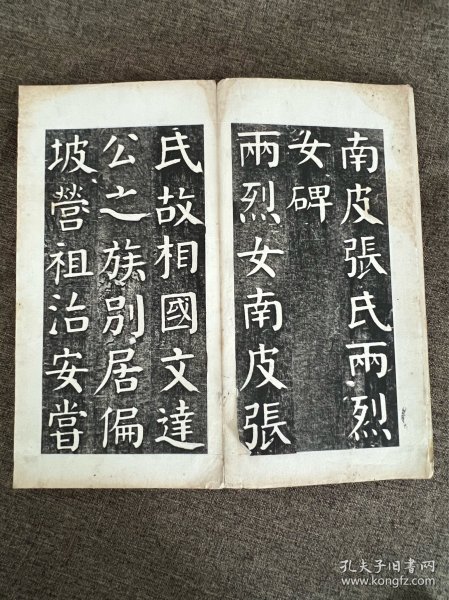 南皮張氏兩烈
女碑
兩烈女南皮張
氏故相國文達
公之族別居偏
坡營祖治安嘗
孔夫子旧书网
www.kongfz.com